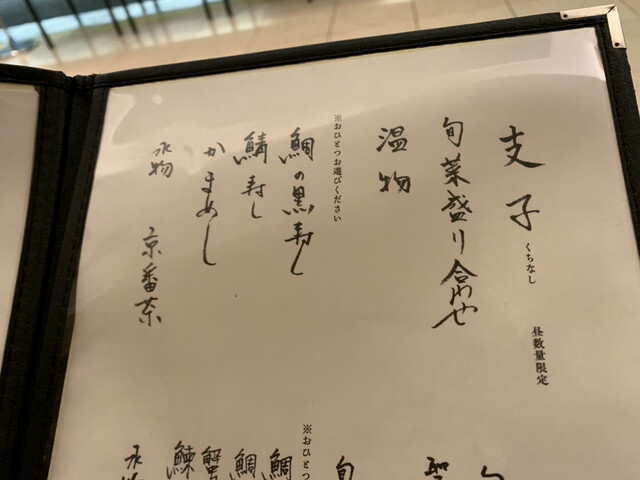 支子
くちなし
昼数量限定
旬菜盛り合わせ
温物
※おひとつお選びください
鯛の黒寿し
鯖寿し
かまめし
水物
京番茶
旬
※おひとつ
鯛
鯛
蟹
鰊